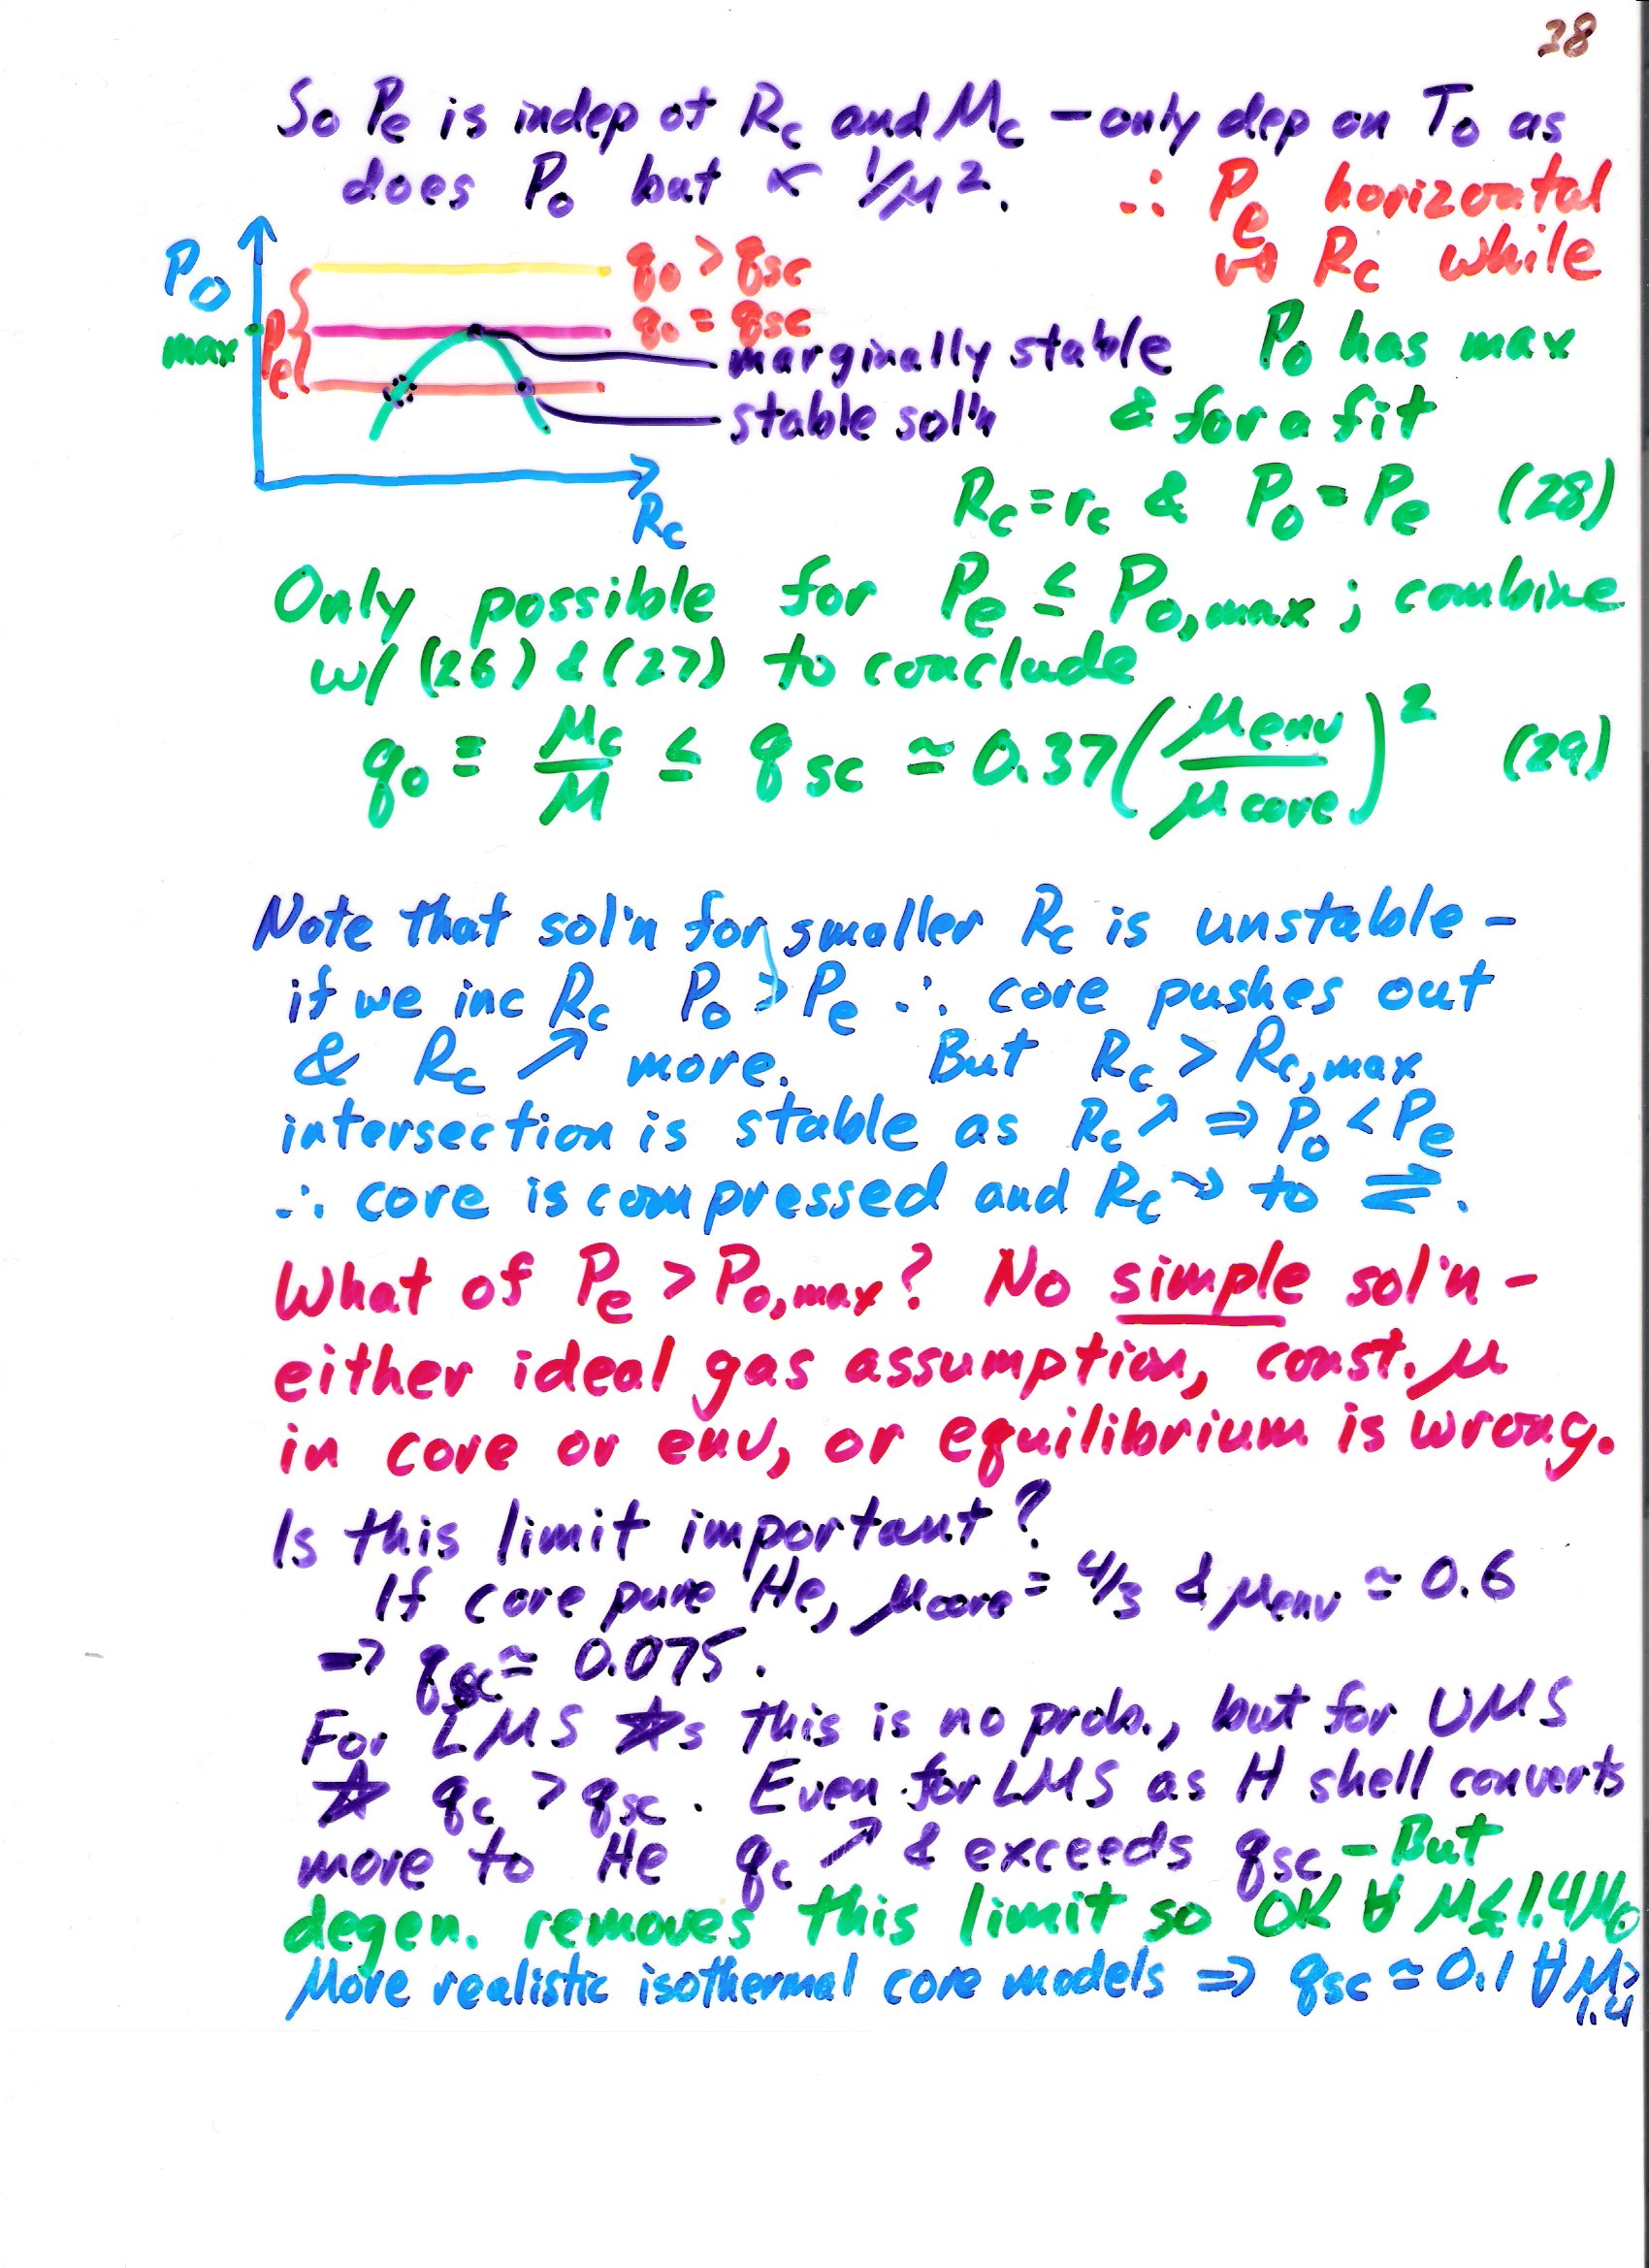 38
So Pe is indep of Rc and Mc – only dep on To as
does Po but ∝ 1/μ².
∴ Pe horizontal
vs Rc while
Po has max
& for a fit
Po
max
Pe
qo > qsc
qo = qsc
marginally stable
stable sol'n
Rc
Rc = rc & Po = Pe (28)
Only possible for Pe ≤ Po,max ; combine
w/ (26) & (27) to conclude
qo ≡ Mc/M ≤ qsc ≃ 0.37 (μenv/μcore)² (29)
Note that sol'n for smaller Rc is unstable –
if we inc Rc Po > Pe ∴ core pushes out
& Rc ↗ more. But Rc > Rc,max
intersection is stable as Rc ↗ ⇒ Po < Pe
∴ core is compressed and Rc → to ⇌.
What of Pe > Po,max? No simple sol'n –
either ideal gas assumption, const. μ
in core or env, or equilibrium is wrong.
Is this limit important?
If core pure He, μcore = 4/3 & μenv ≃ 0.6
⇒ qsc ≃ 0.075.
For LMS ☆s this is no prob., but for UMS
☆ qc > qsc. Even for LMS as H shell converts
more to He qc ↗ & exceeds qsc – But
degen. removes this limit so OK ∀ M ≲ 1.4M⊙
More realistic isothermal core models ⇒ qsc ≃ 0.1 ∀ M>
1.4